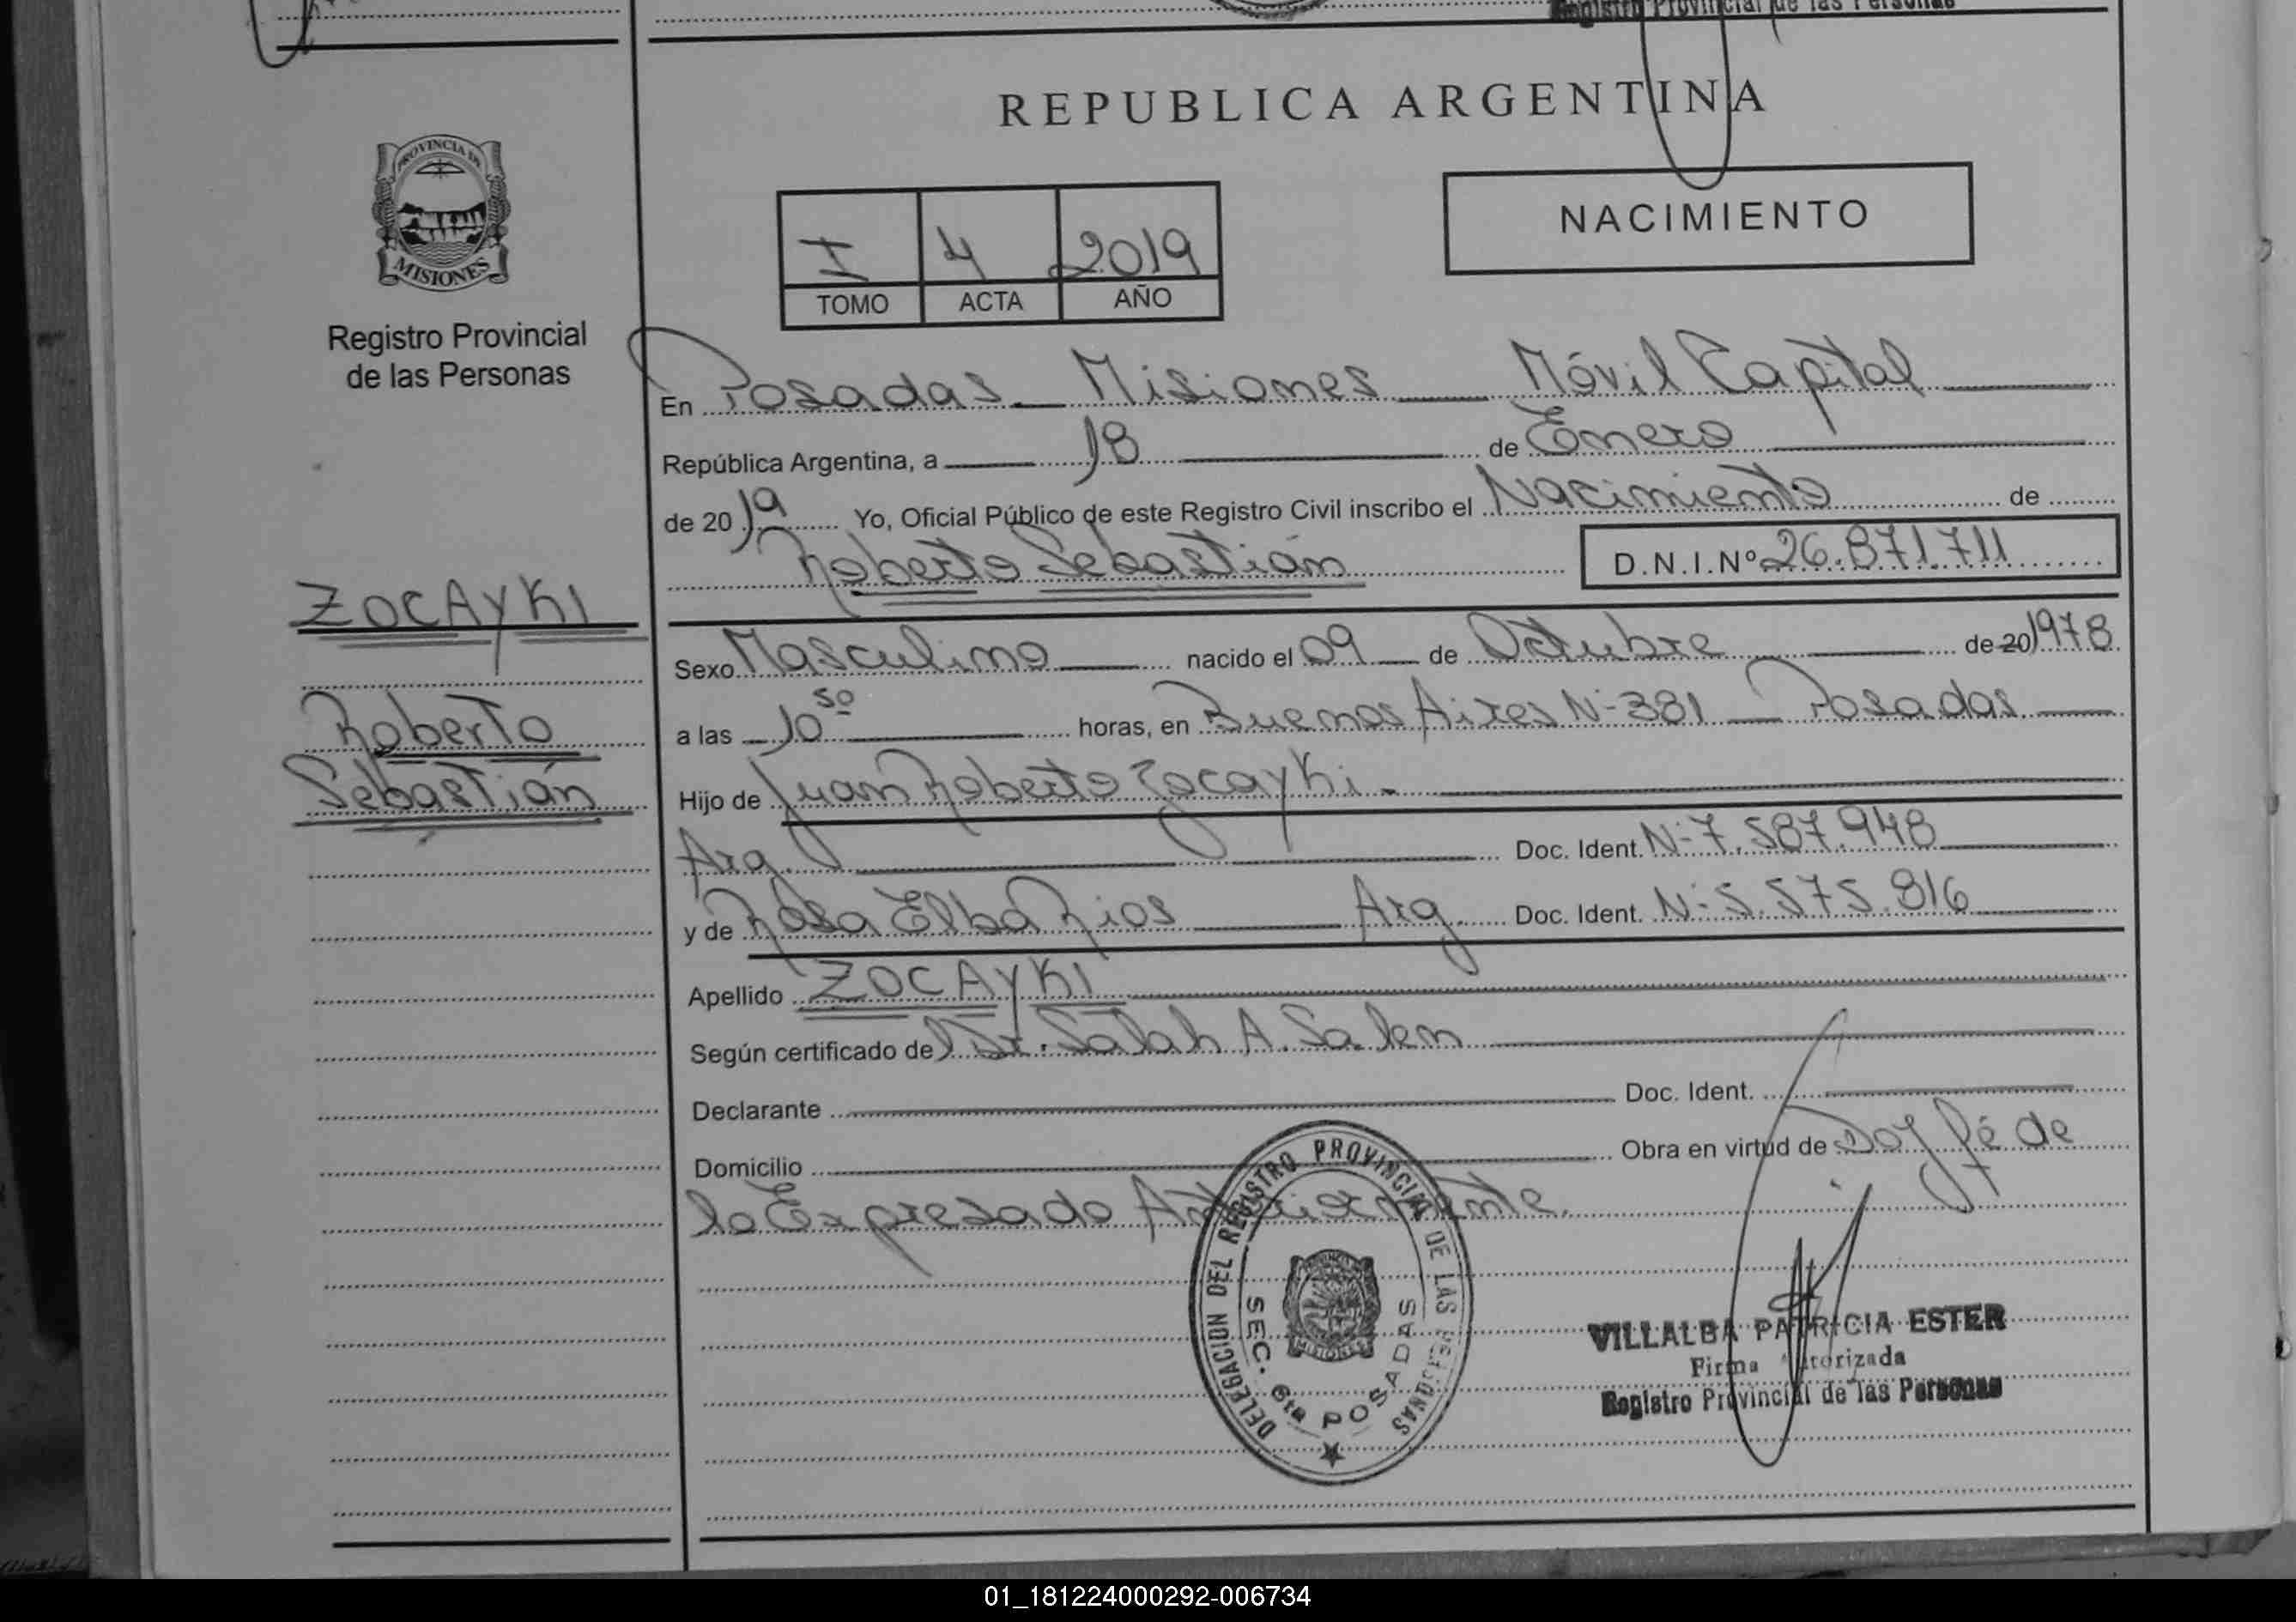 Registro Provincial de las Personas
REPUBLICA ARGENTINA
PROVINCIA DE
MISIONES
Registro Provincial
de las Personas
NACIMIENTO
I 4 2019
TOMO ACTA AÑO
En Posadas - Misiones Móvil Capital
República Argentina, a 18 de Enero
de 2019 Yo, Oficial Público de este Registro Civil inscribo el Nacimiento de
Roberto Sebastián D.N.I.Nº 26.871.711
ZOCAYKI
Roberto
Sebastián
Sexo Masculino nacido el 09 de Octubre de 20 1978
a las 10 50 horas, en Buenos Aires N- 381 Posadas
Hijo de Juan Roberto Zocayki -
Arg. Doc. Ident. N- 7.587.948
y de Rosa Elba Rios Arg. Doc. Ident. N- 5.575.816
Apellido ZOCAYKI
Según certificado del Dr. Salah A. Salem
Declarante Doc. Ident.
Domicilio Obra en virtud de Doy fé de
lo Expresado Anteriormente.
DELEGACION DEL REGISTRO PROVINCIAL DE LAS PERSONAS
SEC. 6ta POSADAS
MISIONES
VILLALBA PATRICIA ESTER
Firma Autorizada
Registro Provincial de las Personas
01_181224000292-006734